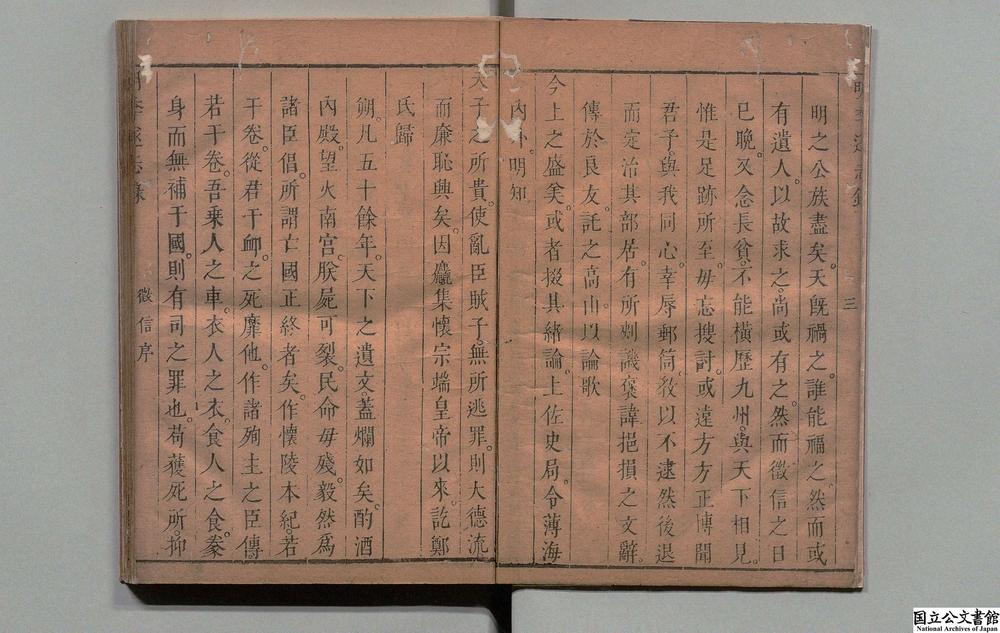 明之公族盡矣。天既禍之。誰能福之。然而或
有遺人。以故求之。尚或有之。然而徵信之日
已晚。又念長貧。不能橫歷九州。與天下相見。
惟是足跡所至。毋忘搜討。或遠方方正博聞
君子。與我同心。幸辱郵筒。教以不逮然後退
而定治其部居。有所刺譏褒諱挹損之文辭。
傳於良友。託之高山。以論歌
今上之盛矣。或者掇其緒論。上佐史局。令薄海
內外。明知
三
天子之所貴。使亂臣賊子。無所逃罪。則大德流
而廉恥興矣。因麤集懷宗端皇帝以來。訖鄭
氏歸
朔。凡五十餘年。天下之遺文。蓋爛如矣。酌酒
內殿。望火南宮。朕屍可裂。民命毋殘。毅然爲
諸臣倡。所謂亡國正終者矣。作懷陵本紀。若
干卷。從君于衈。之死靡他。作諸殉主之臣傳
若干卷。吾乘人之車。衣人之衣。食人之食。豢
身而無補于國。則有司之罪也。苟獲死所。抑
徵信序
国立公文書館
National Archives of Japan